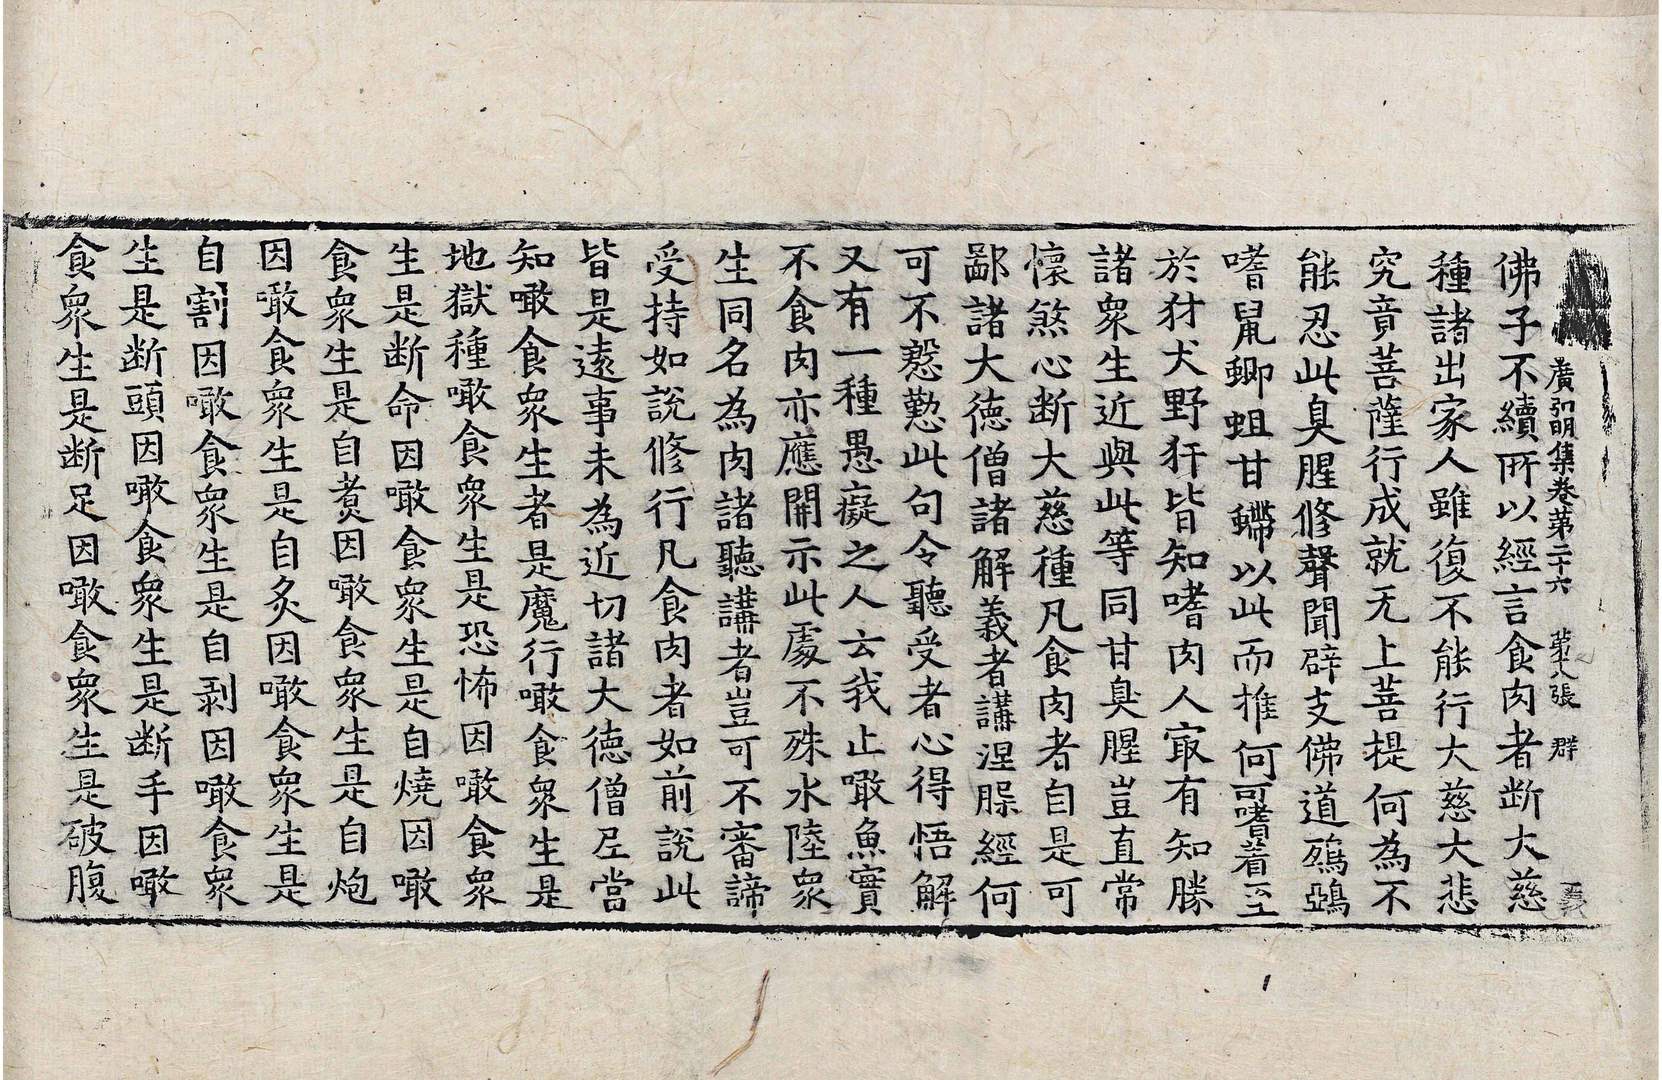 廣弘明集卷第二十六 第八張 群
佛子不續所以經言食肉者断大慈
種諸出家人雖復不能行大慈大悲
究竟菩薩行成就无上菩提何為不
能忍此臭腥修聲聞辟支佛道鵄鵶
嗜鼠蝍蛆甘螮以此而推何可嗜着至
於犲犬野犴皆知嗜肉人㝡有知勝
諸衆生近與此等同甘臭腥豈直常
懷煞心断大慈種凡食肉者自是可
鄙諸大德僧諸解義者講涅䏡經何
可不慇懃此句令聽受者心得悟解
又有一種愚癡之人云我止噉魚實
不食肉亦應開示此處不殊水陸衆
生同名為肉諸聽講者豈可不審諦
受持如說修行凡食肉者如前說此
皆是遠事未為近切諸大德僧尼當
知噉食衆生者是魔行噉食衆生是
地獄種噉食衆生是恐怖因噉食衆
生是断命因噉食衆生是自燒因噉
食衆生是自煑因噉食衆生是自炮
因噉食衆生是自炙因噉食衆生是
自割因噉食衆生是自剥因噉食衆
生是断頭因噉食衆生是断手因噉
食衆生是断足因噉食衆生是破腹